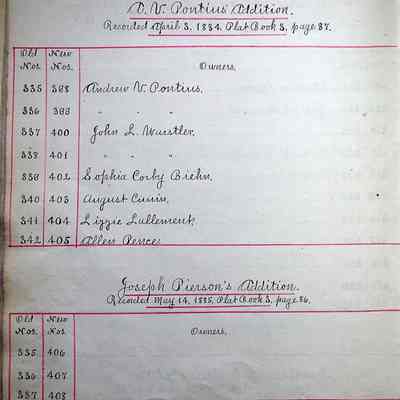 D. V. Pontius Addition.
Recorded April 3, 1884. Plat Book 3, page 37.
Old Nos. New Nos. Owners.
335 398 Andrew V. Pontius,
336 399 " " "
337 400 John L. Wuestler.
338 401 " " "
339 402 Sophia Corby Biehn,
340 403 August Cunin,
341 404 Lizzie Lallement,
342 405 Allen Pence
Joseph Pierson's Addition.
Recorded May 14, 1885. Plat Book 3, page 86.
Old Nos. New Nos. Owners.
335 406
336 407
337 408